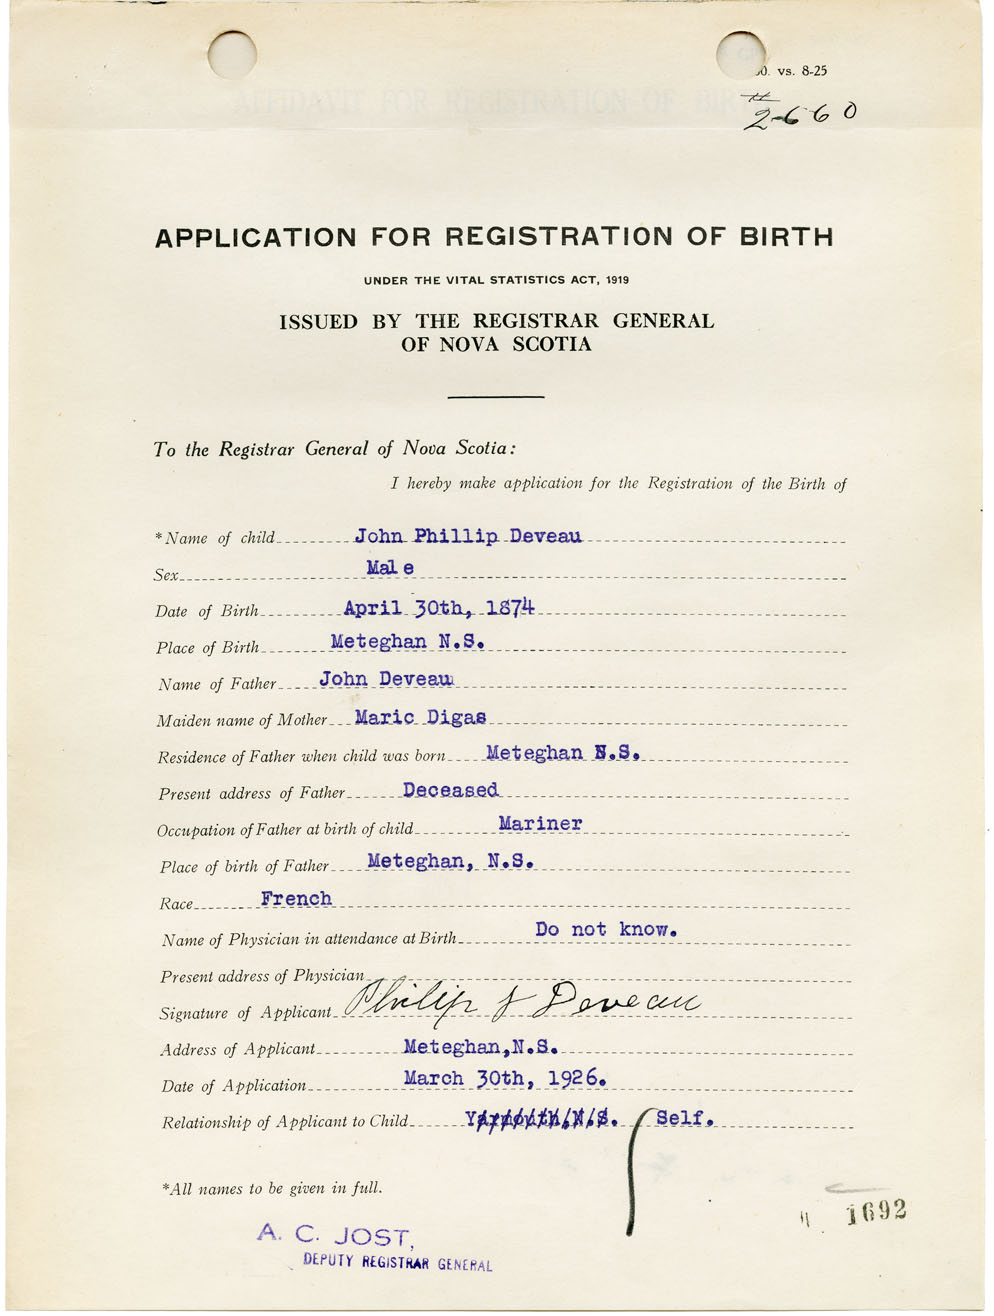 50. vs. 8-25
# 2660
APPLICATION FOR REGISTRATION OF BIRTH
UNDER THE VITAL STATISTICS ACT, 1919
ISSUED BY THE REGISTRAR GENERAL
OF NOVA SCOTIA
To the Registrar General of Nova Scotia:
I hereby make application for the Registration of the Birth of
*Name of child John Phillip Deveau
Sex Male
Date of Birth April 30th, 1874
Place of Birth Meteghan N.S.
Name of Father John Deveau
Maiden name of Mother Maric Digas
Residence of Father when child was born Meteghan N.S.
Present address of Father Deceased
Occupation of Father at birth of child Mariner
Place of birth of Father Meteghan, N.S.
Race French
Name of Physician in attendance at Birth Do not know.
Present address of Physician
Signature of Applicant Philip J Deveau
Address of Applicant Meteghan,N.S.
Date of Application March 30th, 1926.
Relationship of Applicant to Child Yarmouth,N.S. Self.
*All names to be given in full.
1692
A. C. JOST,
DEPUTY REGISTRAR GENERAL